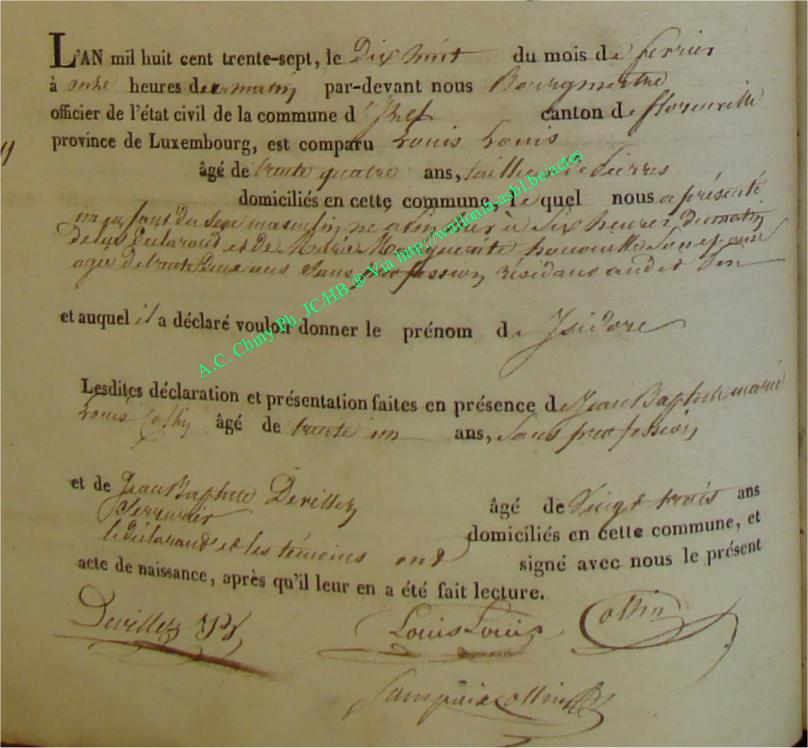 L'AN mil huit cent trente-sept, le Dix huit du mois de fevrier
à onze heures du matin par-devant nous Bourgmestre
officier de l'état civil de la commune d' canton de florenville
province de Luxembourg, est comparu Louis Louis
âgé de trente quatre ans, tailleur de Pierres
domiciliés en cette commune, lequel nous a présenté
un enfant du sexe masculin, né à six heures du matin
de lui Déclarant et de Marie Marguerite son épouse
agée de trente Deux ans Sans profession, résidans audit
et auquel il a déclaré vouloir donner le prénom de Isidore
Lesdites déclaration et présentation faites en présence de Jean Baptiste marie
Louis âgé de trente un ans, Sans profession,
et de Jean Baptiste Devillez âgé de Vingt trois ans
Serrurier domiciliés en cette commune, et
le déclarant et les témoins ont signé avec nous le présent
acte de naissance, après qu'il leur en a été fait lecture.
Devillez Louis Louis Collin
A.C. Chiny Ph. JC/HB @ Via http://wallonia-asbl.be/actes